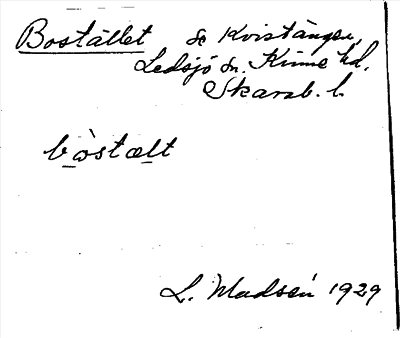 Bostället se Kvistängen,
Ledsjö sn. Kinne hd.
Skarab. l.
bòstælt
L. Madsén 1929